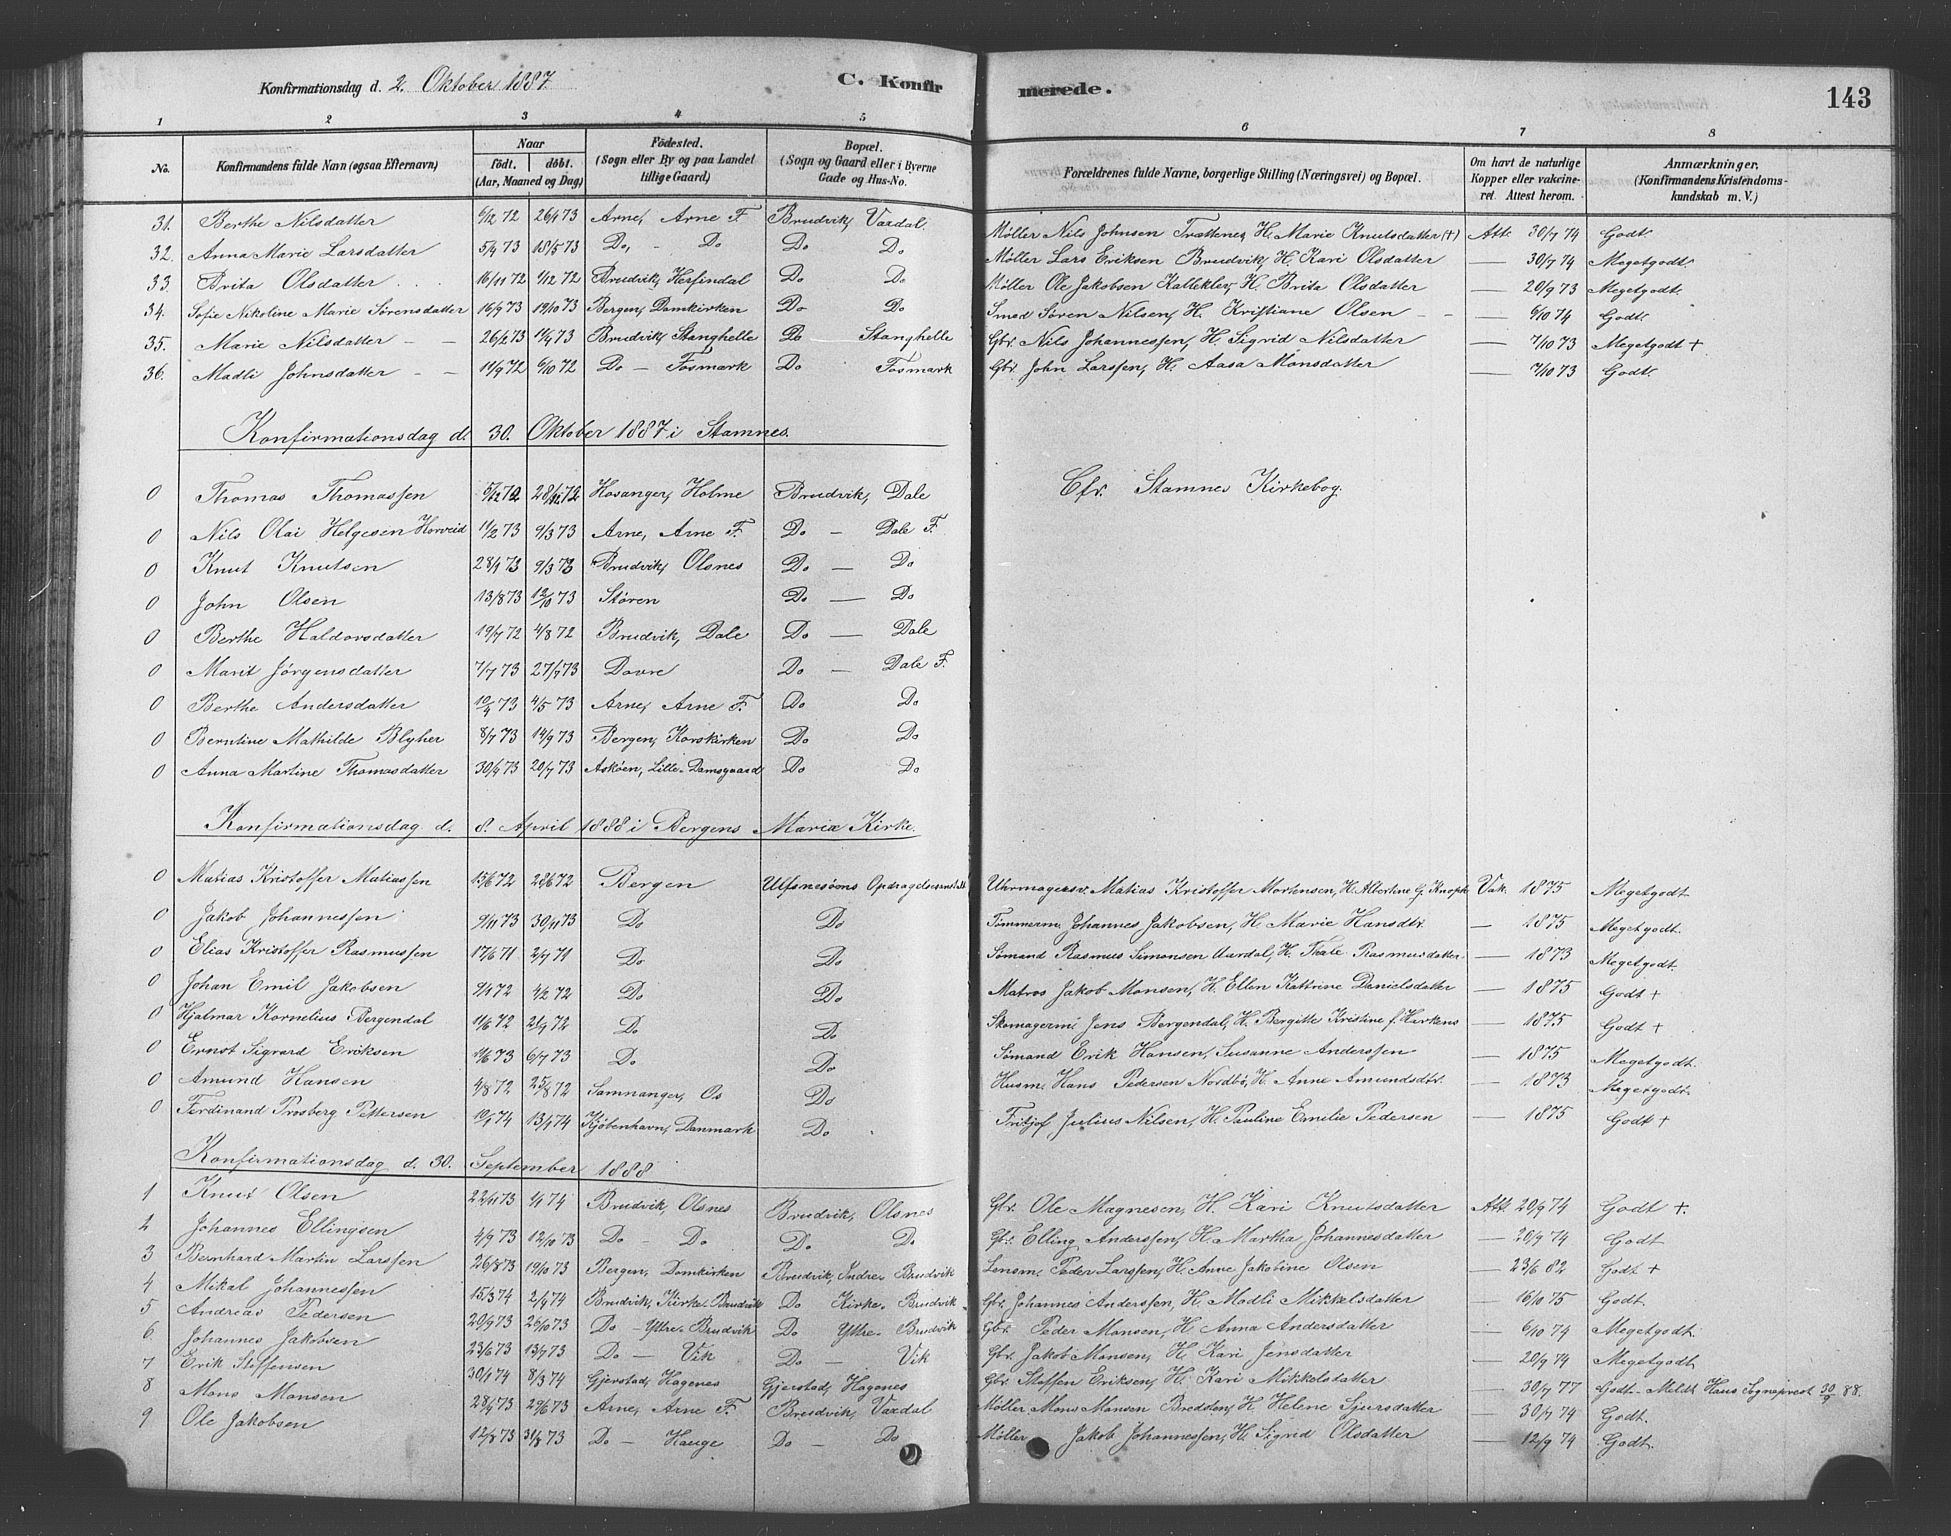 Konfirmationsdag d. 2. Oktober 1887. C. Konfir merede. 143
1 2 3 4 5 6 7 8
No. Konfirmandens fulde Navn (ogsaa Efternavn) Naar født. døbt. (Aar, Maaned og Dag) Fødested. (Sogn eller By og paa Landet tillige Gaard) Bopæl. (Sogn og Gaard eller i Byerne Gade og Hus-No. Forældrenes fulde Navne, borgerlige Stilling (Næringsvei) og Bopæl. Om havt de naturlige Kopper eller vakcineret. Attest herom. Anmærkninger. (Konfirmandens Kristendomskundskab m. V.)
31. Berthe Nilsdatter 6/12 72 26/1 73 Arne, Arne F. Brudvik, Vaxdal Møller Nils Johnsen Trættenes, H. Marie Knutsdatter (+) Att. 30/7 74 Godt.
32. Anna Marie Larsdatter 5/4 73 18/5 73 Do, - Do Do Do Møller Lars Eriksen Brudvik, H. Kari Olsdatter — 30/7 74 Megetgodt.
33 Brita Olsdatter 16/11 72 1/12 72 Brudvik, Herfindal Do Do Møller Ole Jakobsen Kalleklev, H. Brita Olsdatter — 20/9 73 Megetgodt.
34. Sofie Nikoline Marie Sørensdatter 16/9 73 19/10 73 Bergen, Domkirken Do Do Smed Søren Nilsen, H. Kristiane Olsen — 6/10 74 Godt.
35. Marie Nilsdatter 26/2 73 14/4 73 Brudvik, Stanghelle Do Stanghelle Gbr. Nils Johannessen, H. Sigrid Nilsdatter — 7/10 73 Megetgodt +
36. Madli Johnsdatter 11/9 72 6/10 72 Do — Fosmark Do Fosmark Gbr. John Larssen, H. Aasa Monsdatter — 7/10 73 Godt.
Konfirmationsdag d. 30. Oktober 1887 i Stamnes.
0 Thomas Thomassen 5/12 72 28/12 72 Hosanger, Holme Brudvik, Dale Cfr. Stamnes Kirkebog.
0 Nils Olai Helgesen Horveid 11/2 73 9/3 73 Arne, Arne F. Do — Dale F.
0 Knut Knutsen 28/1 73 9/3 73 Brudvik, Olsnes Do — Do
0 John Olsen 13/8 73 12/10 73 Støren Do — Do
0 Berthe Haldorsdatter 19/7 72 4/8 72 Brudvik, Dale Do — Dale
0 Marit Jørgensdatter 7/7 73 27/7 73 Dovre Do — Dale F.
0 Berthe Andersdatter 10/4 73 4/5 73 Arne, Arne F. Do Do
0 Berntine Mathilde Blyher 8/7 73 14/9 73 Bergen, Korskirken Do Do
0 Anna Martine Thomasdatter 30/4 73 20/7 73 Askøen, Lille-Damsgaard Do Do
Konfirmationsdag d. 8. April 1888 i Bergens Maria Kirke.
0 Matias Kristoffer Matiassen 15/6 72 28/6 72 Bergen Ulfsnesøens Opdragelsesanstalt Uhrmagersv. Matias Kristoffer Mortensen, H. Albertine G. Knoph Vak. 1875 Megetgodt
0 Jakob Johannessen 9/11 73 30/11 73 Do Do Tømmerm. Johannes Jakobsen, H. Marie Hansdtr. — 1875 Megetgodt.
0 Elias Kristoffer Rasmussen 17/6 71 2/7 71 Do Do Sømand Rasmus Simonsen Aardal, H. Thale Rasmusdatter — 1873 Megetgodt.
0 Johan Emil Jakobsen 9/1 72 4/2 72 Do Do Matros Jakob Monsen, H. Ellen Kattrine Danielsdatter — 1875 Godt +
0 Hjalmar Kornelius Bergendal 11/6 72 21/9 72 Do Do Skomagerm. Jens Bergendal, H. Bergitte Kristine f. Harkens — 1875 Godt +
0 Ernst Sigvard Eriksen 11/6 73 6/7 73 Do Do Sømand Erik Hansen, Susanne Anderssen — 1875 Megetgodt.
0 Amund Hansen 4/8 72 25/8 72 Samnanger, Os Do Husm. Hans Pedersen Nordbø, H. Anne Amundsdtr. — 1873 Megetgodt.
0 Ferdinand Prosberg Pettersen 10/1 74 13/1 74 Kjøbenhavn, Danmark Do Fritjof Julius Nilsen, H. Pauline Emilie Pedersen — 1875 Godt +
Konfirmationsdag d. 30. September 1888
1 Knut Olsen 22/11 73 1/1 74 Brudvik, Olsnes Brudvik, Olsnes Gbr. Ole Magnesen, H. Kari Knutsdatter Att. 20/9 74 Godt +.
2 Johannes Ellingsen 4/9 73 12/10 73 Do — Do Do Do Gbr. Elling Anderssen, H. Martha Johannesdatter — 20/9 74 Godt
3 Bernhard Martin Larssen 26/8 73 19/10 73 Bergen, Domkirken Brudvik, Indre-Brudvik Lensm. Peder Larssen, H. Anne Jakobine Olsen — 23/6 82 Godt +
4 Mikal Johannessen 15/3 74 2/4 74 Brudvik, Kirke-Brudvik Do Kirke-Brudvik Gbr. Johannes Anderssen, H. Madli Mikkelsdatter — 16/10 75 Godt.
5 Andreas Pedersen 20/9 73 26/10 73 Do — Yttre-Brudvik Do Yttre-Brudvik Gbr. Peder Monsen, H. Anna Andersdatter — 6/10 74 Megetgodt.
6. Johannes Jakobsen 23/6 73 13/7 73 Do — Vik Do — Vik Gbr. Jakob Monsen, H. Kari Jensdatter — 20/9 74 Megetgodt
7 Erik Steffensen 30/1 74 8/3 74 Gjerstad, Hagenes Gjerstad, Hagenes Gbr. Steffen Eriksen, H. Kari Mikkelsdatter — 30/7 77 Godt - Meldt Haus Sogneprest 30/9 88.
8 Mons Monsen 28/4 73 29/6 73 Arne, Arne F. Brudvik, Vaxdal Møller Mons Monsen Bredsten, H. Helene Sjursdatter — 30/7 74 Godt.
9 Ole Jakobsen 12/8 73 31/8 73 Do — Hauge Do — Do Møller Jakob Johannessen, H. Sigrid Olsdatter — 12/9 74 Godt.